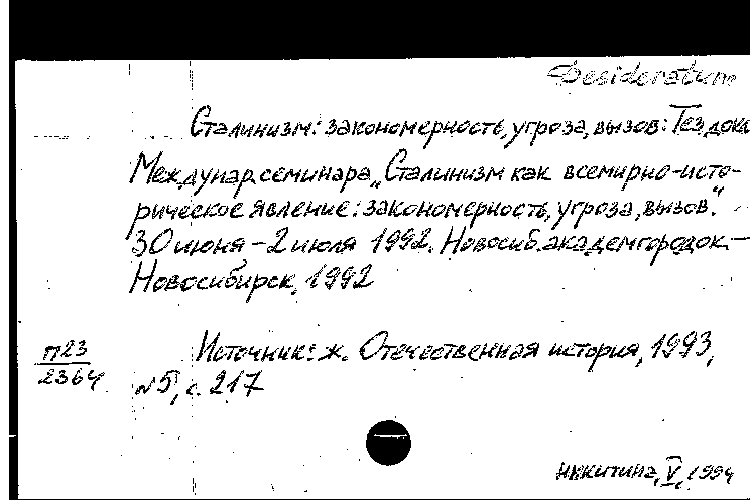 Desideratum
Сталинизм: закономерность, угроза, вызов: Тез. докл
Междунар. семинара „Сталинизм как всемирно-исто-
рическое явление: закономерность, угроза, вызов."
30 июня – 2 июля 1992. Новосиб. академгородок. –
Новосибирск, 1992
П23
2364
Источник: ж. Отечественная история, 1993,
№5, с. 217
Никитина, V, 1994